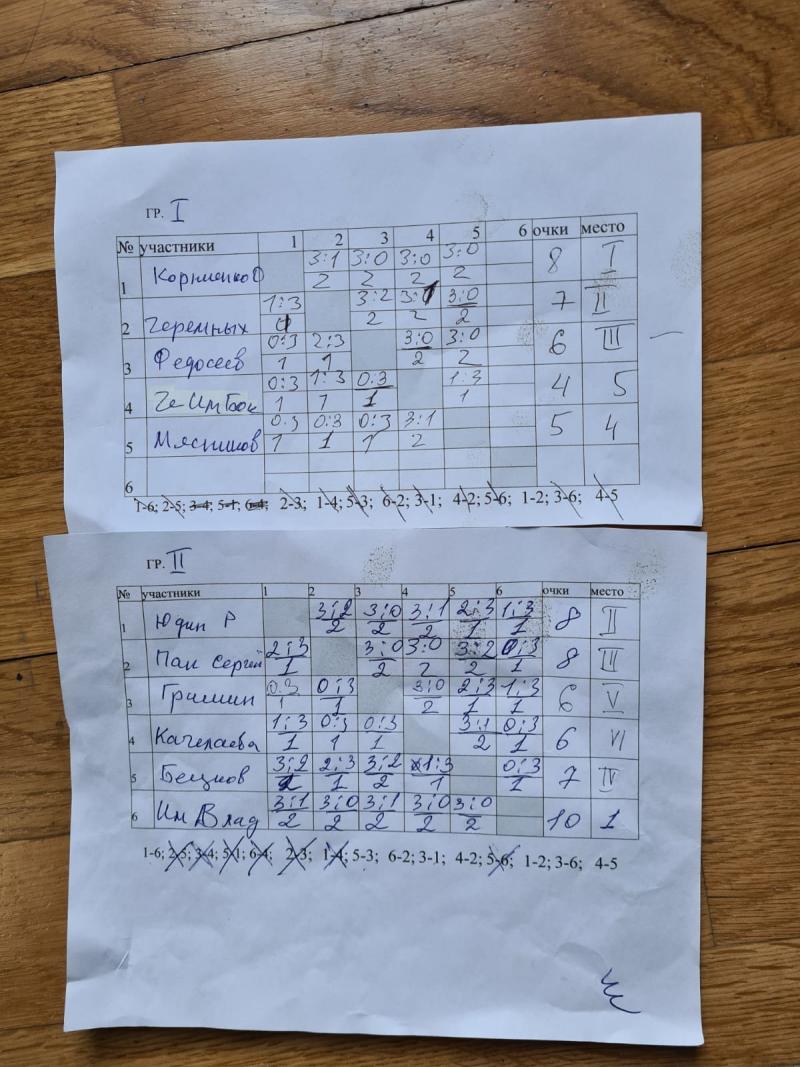 ГР. I
№ участники 1 2 3 4 5 6 очки место
1 Корниенко О 3:1 3:0 3:0 3:0 8 I
2 2 2 2
2 Черемных 1:3 3:2 3:0 7 II
2 2 2
3 Федосеев 0:3 2:3 3:0 3:0 6 III
1 1 2 2
4 Че Им Бок 0:3 1:3 0:3 1:3 4 5
1 1 1 1
5 Мясников 0:3 0:3 0:3 3:1 5 4
1 1 1 2
6
1-6; 2-5; 3-4; 5-1; 6-4; 2-3; 1-4; 5-3; 6-2; 3-1; 4-2; 5-6; 1-2; 3-6; 4-5
ГР. II
№ участники 1 2 3 4 5 6 очки место
1 Юдин Р 3:2 3:0 3:1 2:3 1:3 8 II
2 2 2 1 1
2 Пак Сергей 2:3 3:0 3:0 3:2 0:3 8 III
1 2 2 2 1
3 Гришин 0:3 0:3 3:0 2:3 1:3 6 V
1 1 2 1 1
4 Качелаева 1:3 0:3 0:3 3:1 0:3 6 VI
1 1 1 2 1
5 3:2 2:3 3:2 1:3 0:3 7 IV
2 1 2 1 1
6 Им Влад 3:1 3:0 3:1 3:0 3:0 10 1
2 2 2 2 2
1-6; 2-5; 3-4; 5-1; 6-4; 2-3; 1-4; 5-3; 6-2; 3-1; 4-2; 5-6; 1-2; 3-6; 4-5